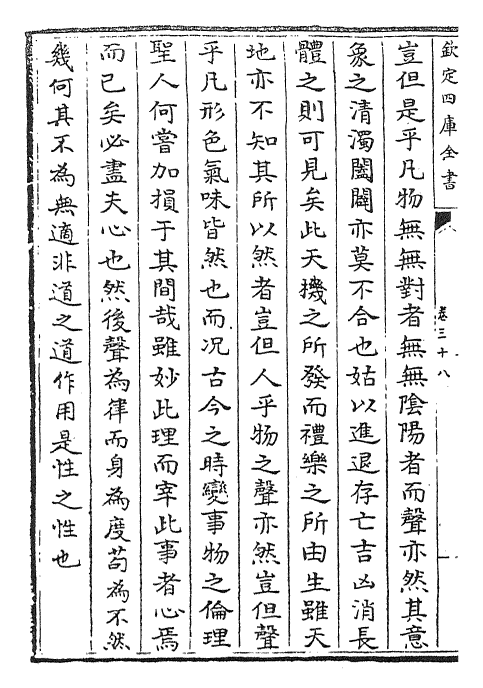 欽定四庫全書
卷三十八
豈但是乎凡物無無對者無無隂陽者而聲亦然其意
象之清濁闔闢亦莫不合也姑以進退存亡吉凶消長
體之則可見矣此天機之所發而禮樂之所由生雖天
地亦不知其所以然者豈但人乎物之聲亦然豈但聲
乎凡形色氣味皆然也而况古今之時變事物之倫理
聖人何嘗加損于其間哉雖妙此理而宰此事者心焉
而已矣必盡夫心也然後聲為律而身為度苟為不然
幾何其不為無適非道之道作用是性之性也